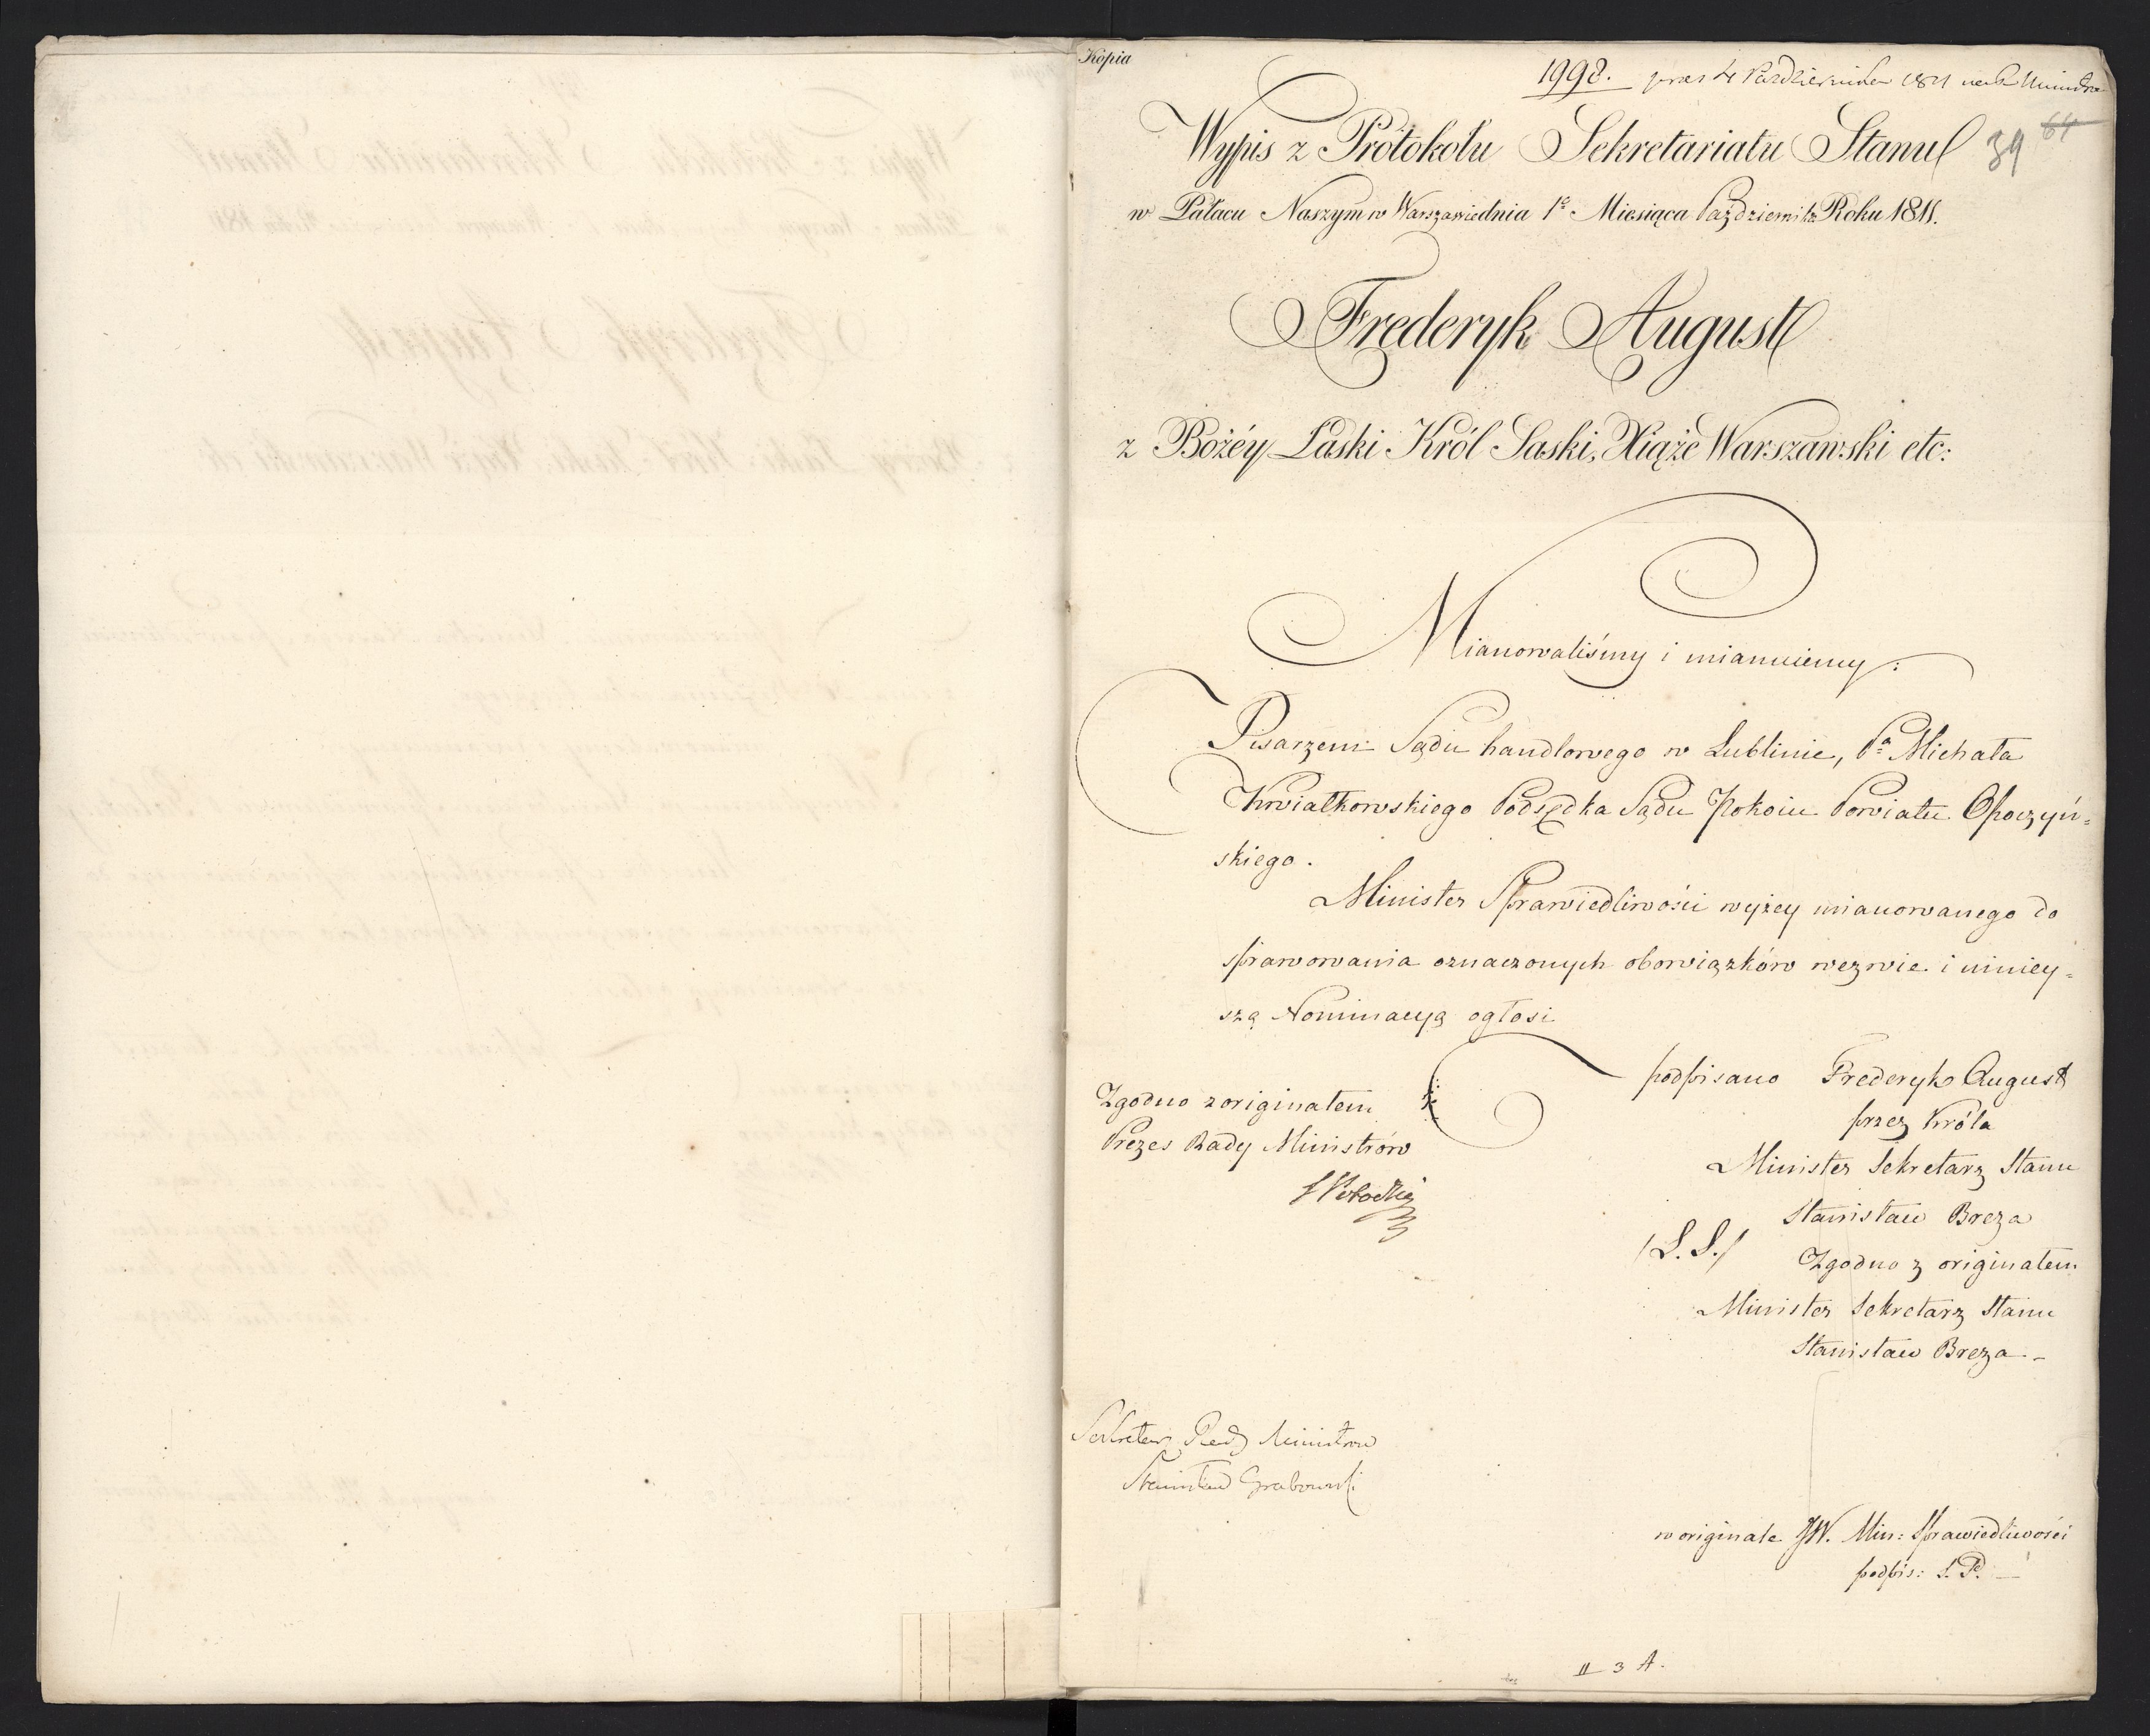 Kopia
1998. prez 4 Października 1811
Wypis z Protokołu Sekretariatu Stanu
39 64
w Pałacu Naszym w Warszawie dnia 1º Miesiąca Października Roku 1811.
Frederyk August
z Bożéy Łaski Król Saski, Xiąże Warszawski etc:
Mianowaliśmy i mianuiemy:
Pisarzem Sądu handlowego w Lublinie, Pª Michała
Kwiatkowskiego Podsędka Sądu Pokoiu Powiatu Opoczyń=
skiego.
Minister Sprawiedliwości wyżey mianowanego do
sprawowania oznaczonych obowiązków wezwie i niniey=
szą Nominacyą ogłosi
podpisano Frederyk August
przez Króla
Minister Sekretarz Stanu
Stanisław Breza
(L. S.)
Zgodno z originałem
Minister Sekretarz Stanu
Stanisław Breza.-
Zgodno z originałem
Prezes Rady Ministrów
Sekretarz Rady Ministrów
Stanisław Grabowski
w originale JW. Min: Sprawiedliwości
podpis: Ł. P. —
II 3 A.